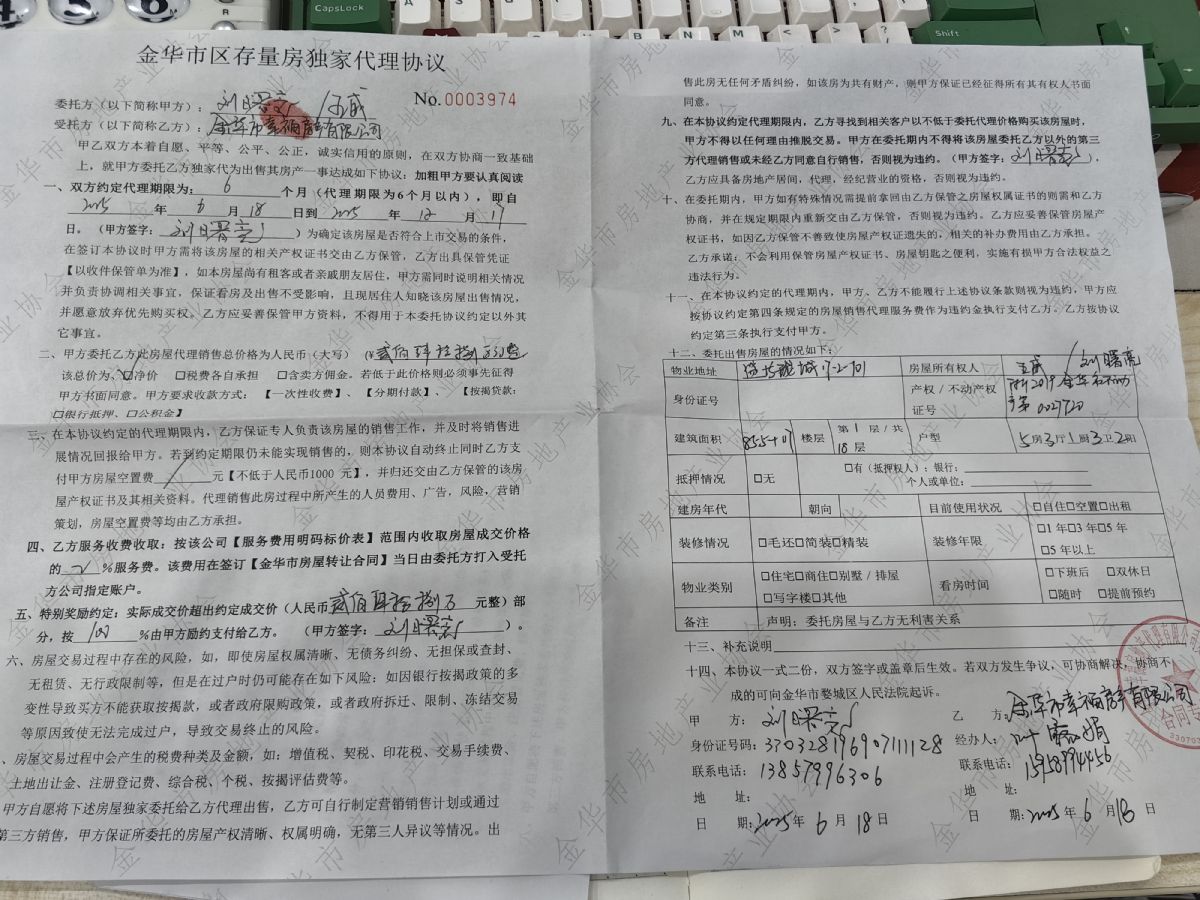 CapsLock
Shift
金华市区存量房独家代理协议
委托方（以下简称甲方）：刘曙亮 / 王威 No.0003974
受托方（以下简称乙方）：金华市幸福房产有限公司
甲乙双方本着自愿、平等、公平、公正，诚实信用的原则，在双方协商一致基础
上，就甲方委托乙方独家代为出售其房产一事达成如下协议：加粗甲方要认真阅读
一、双方约定代理期限为：6 个月（代理期限为6个月以内），即自
2025 年 6 月 18 日到 2025 年 12 月 17
日。（甲方签字：刘曙亮）为确定该房屋是否符合上市交易的条件，
在签订本协议时甲方需将该房屋的相关产权证书交由乙方保管，乙方出具保管凭证
【以收件保管单为准】，如本房屋尚有租客或者亲戚朋友居住，甲方需同时说明相关情况
并负责协调相关事宜，保证看房及出售不受影响，且现居住人知晓该房屋出售情况，
并愿意放弃优先购买权。乙方应妥善保管甲方资料，不得用于本委托协议约定以外其
它事宜。
二、甲方委托乙方此房屋代理销售总价格为人民币（大写）（¥贰佰肆拾捌万
该总价为、☑净价 □税费各自承担 □含卖方佣金。若低于此价格则必须事先征得
甲方书面同意。甲方要求收款方式：【一次性收费】、【分期付款】、【按揭贷款：
□银行抵押、□公积金】
三、在本协议约定的代理期限内，乙方保证专人负责该房屋的销售工作，并及时将销售进
展情况回报给甲方。若到约定期限仍未能实现销售的，则本协议自动终止同时乙方支
付甲方房屋空置费 / 元【不低于人民币1000 元】，并归还交由乙方保管的该房
屋产权证书及其相关资料。代理销售此房过程中所产生的人员费用、广告，风险，营销
策划，房屋空置费等均由乙方承担。
四、乙方服务收费收取：按该公司【服务费用明码标价表】范围内收取房屋成交价格
的 2 %服务费。该费用在签订【金华市房屋转让合同】当日由委托方打入受托
方公司指定账户。
五、特别奖励约定：实际成交价超出约定成交价（人民币贰佰肆拾捌万 元整）部
分，按 100 %由甲方励约支付给乙方。（甲方签字：刘曙亮）。
六、房屋交易过程中存在的风险，如，即使房屋权属清晰、无债务纠纷、无担保或查封、
无租赁、无行政限制等，但是在过户时仍可能存在如下风险：如因银行按揭政策的多
变性导致买方不能获取按揭款，或者政府限购政策，或者政府拆迁、限制、冻结交易
等原因致使无法完成过户，导致交易终止的风险。
、房屋交易过程中会产生的税费种类及金额，如：增值税、契税、印花税、交易手续费、
土地出让金、注册登记费、综合税、个税、按揭评估费等。
甲方自愿将下述房屋独家委托给乙方代理出售，乙方可自行制定营销销售计划或通过
第三方销售，甲方保证所委托的房屋产权清晰、权属明确，无第三人异议等情况。出
售此房无任何矛盾纠纷，如该房为共有财产，则甲方保证已经征得所有其有权人书面
同意。
九、在本协议约定代理期限内，乙方寻找到相关客户以不低于委托代理价格购买该房屋时，
甲方不得以任何理由推脱交易。甲方在委托期内不得将该房屋委托乙方以外的第三
方代理销售或未经乙方同意自行销售，否则视为违约。（甲方签字：刘曙亮），
乙方应具备房地产居间，代理，经纪营业的资格，否则视为违约。
十、在委托期内，甲方如有特殊情况需提前拿回由乙方保管之房屋权属证书的则需和乙方
协商，并在规定期限内重新交由乙方保管，否则视为违约。乙方应妥善保管房屋产
权证书，如因乙方保管不善致使房屋产权证遗失的，相关的补办费用由乙方承担。
乙方承诺：不会利用保管房屋产权证书、房屋钥匙之便利，实施有损甲方合法权益之
违法行为。
十一、在本协议约定的代理期内，甲方、乙方不能履行上述协议条款则视为违约，甲方应
按协议约定第四条规定的房屋销售代理服务费作为违约金执行支付乙方。乙方按协议
约定第三条执行支付甲方。
十二、委托出售房屋的情况如下：
物业地址 城17-2-701 房屋所有权人 王威 / 刘曙亮
身份证号 产权 / 不动产权证号 2019金华 不动产第0027720
建筑面积 85.5+107 楼层 第 1 层 / 共 18 层 户型 5房3厅1厨3卫2阳
抵押情况 □无 □有（抵押权人）：银行： 个人或单位：
建房年代 朝向 目前使用状况 □自住□空置□出租
装修情况 □毛还□简装□精装 装修年限 □1 年□3 年□5 年 □5 年以上
物业类别 □住宅□商住□别墅 / 排屋 □写字楼□其他 看房时间 □下班后 □双休日 □随时 □提前预约
备注 声明：委托房屋与乙方无利害关系
十三、补充说明
十四、本协议一式二份，双方签字或盖章后生效。若双方发生争议，可协商解决，协商不
成的可向金华市婺城区人民法院起诉。
甲 方：刘曙亮 乙 方：金华市幸福房产有限公司
身份证号码：330328196907111128 经办人：叶 娟
联系电话：13857996306 联系电话：15958994456
地 址： 地 址：
日 期：2025年 6 月 18 日 日 期：2025年 6 月 18 日